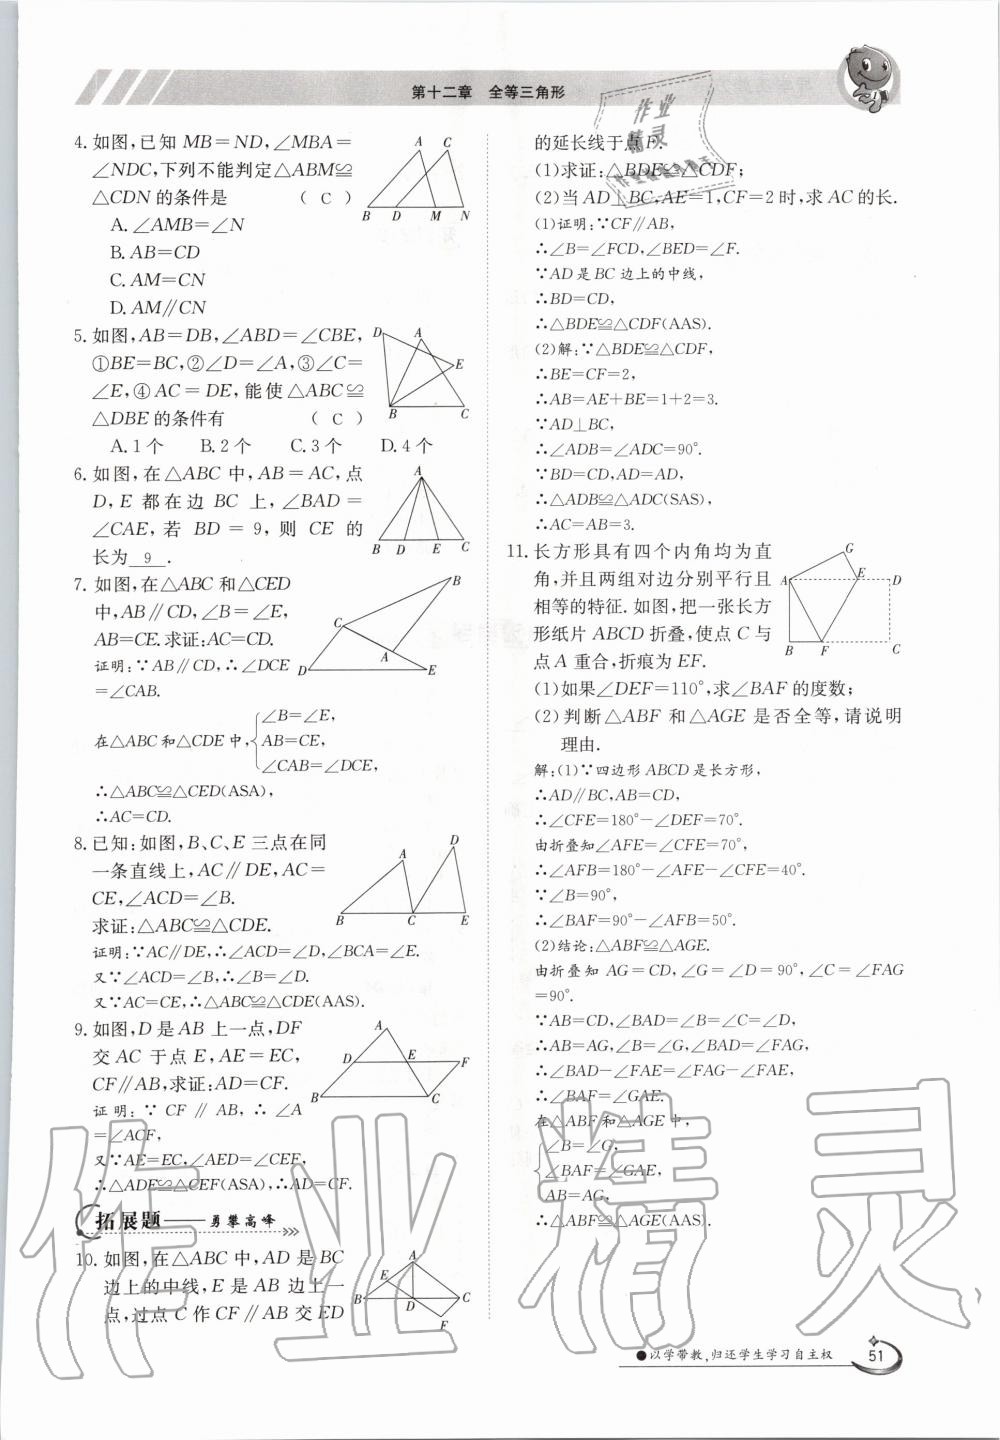 第十二章 全等三角形
4. 如图,已知 MB=ND,∠MBA=
∠NDC,下列不能判定△ABM≌
△CDN 的条件是 ( C )
A. ∠AMB=∠N
B. AB=CD
C. AM=CN
D. AM∥CN
A C
B D M N
5. 如图,AB=DB,∠ABD=∠CBE,
①BE=BC,②∠D=∠A,③∠C=
∠E,④AC=DE,能使△ABC≌
△DBE 的条件有 ( C )
A. 1 个 B. 2 个 C. 3 个 D. 4 个
D A E
B C
6. 如图,在△ABC 中,AB=AC,点
D,E 都在边 BC 上,∠BAD=
∠CAE,若 BD=9,则 CE 的
长为 9 .
A
B D E C
7. 如图,在△ABC 和△CED
中,AB∥CD,∠B=∠E,
AB=CE.求证:AC=CD.
证明:∵AB∥CD,∴∠DCE
=∠CAB.
∠B=∠E,
在△ABC 和△CDE 中, AB=CE,
∠CAB=∠DCE,
∴△ABC≌△CED(ASA),
∴AC=CD.
B
C
A
D E
8. 已知:如图,B、C、E 三点在同
一条直线上,AC∥DE,AC=
CE,∠ACD=∠B.
求证:△ABC≌△CDE.
证明:∵AC∥DE,∴∠ACD=∠D,∠BCA=∠E.
又∵∠ACD=∠B,∴∠B=∠D.
又∵AC=CE,∴△ABC≌△CDE(AAS).
D
A
B C E
9. 如图,D 是 AB 上一点,DF
交 AC 于点 E,AE=EC,
CF∥AB,求证:AD=CF.
证明:∵CF∥AB,∴∠A
=∠ACF,
又∵AE=EC,∠AED=∠CEF,
∴△ADE≌△CEF(ASA),∴AD=CF.
A
D E F
B C
拓展题——勇攀高峰
10. 如图,在△ABC 中,AD 是 BC
边上的中线,E 是 AB 边上一
点,过点 C 作 CF∥AB 交 ED
A
E
B D C
F
的延长线于点 F.
(1)求证:△BDE≌△CDF;
(2)当 AD⊥BC,AE=1,CF=2 时,求 AC 的长.
(1)证明:∵CF∥AB,
∴∠B=∠FCD,∠BED=∠F.
∵AD 是 BC 边上的中线,
∴BD=CD,
∴△BDE≌△CDF(AAS).
(2)解:∵△BDE≌△CDF,
∴BE=CF=2,
∴AB=AE+BE=1+2=3.
∵AD⊥BC,
∴∠ADB=∠ADC=90°.
∵BD=CD,AD=AD,
∴△ADB≌△ADC(SAS),
∴AC=AB=3.
11. 长方形具有四个内角均为直
角,并且两组对边分别平行且
相等的特征. 如图,把一张长方
形纸片 ABCD 折叠,使点 C 与
点 A 重合,折痕为 EF.
(1)如果∠DEF=110°,求∠BAF 的度数;
(2)判断△ABF 和△AGE 是否全等,请说明
理由.
G
A E D
B F C
解:(1)∵四边形 ABCD 是长方形,
∴AD∥BC,AB=CD,
∴∠CFE=180°−∠DEF=70°.
由折叠知∠AFE=∠CFE=70°,
∴∠AFB=180°−∠AFE−∠CFE=40°.
∵∠B=90°,
∴∠BAF=90°−∠AFB=50°.
(2)结论:△ABF≌△AGE.
由折叠知 AG=CD,∠G=∠D=90°,∠C=∠FAG
=90°.
∵AB=CD,∠BAD=∠B=∠C=∠D,
∴AB=AG,∠B=∠G,∠BAD=∠FAG,
∴∠BAD−∠FAE=∠FAG−∠FAE,
∴∠BAF=∠GAE.
在△ABF 和△AGE 中,
∠B=∠G,
∠BAF=∠GAE,
AB=AG,
∴△ABF≌△AGE(AAS).
作业精灵
作业
精灵
●以学带教,归还学生学习自主权
51